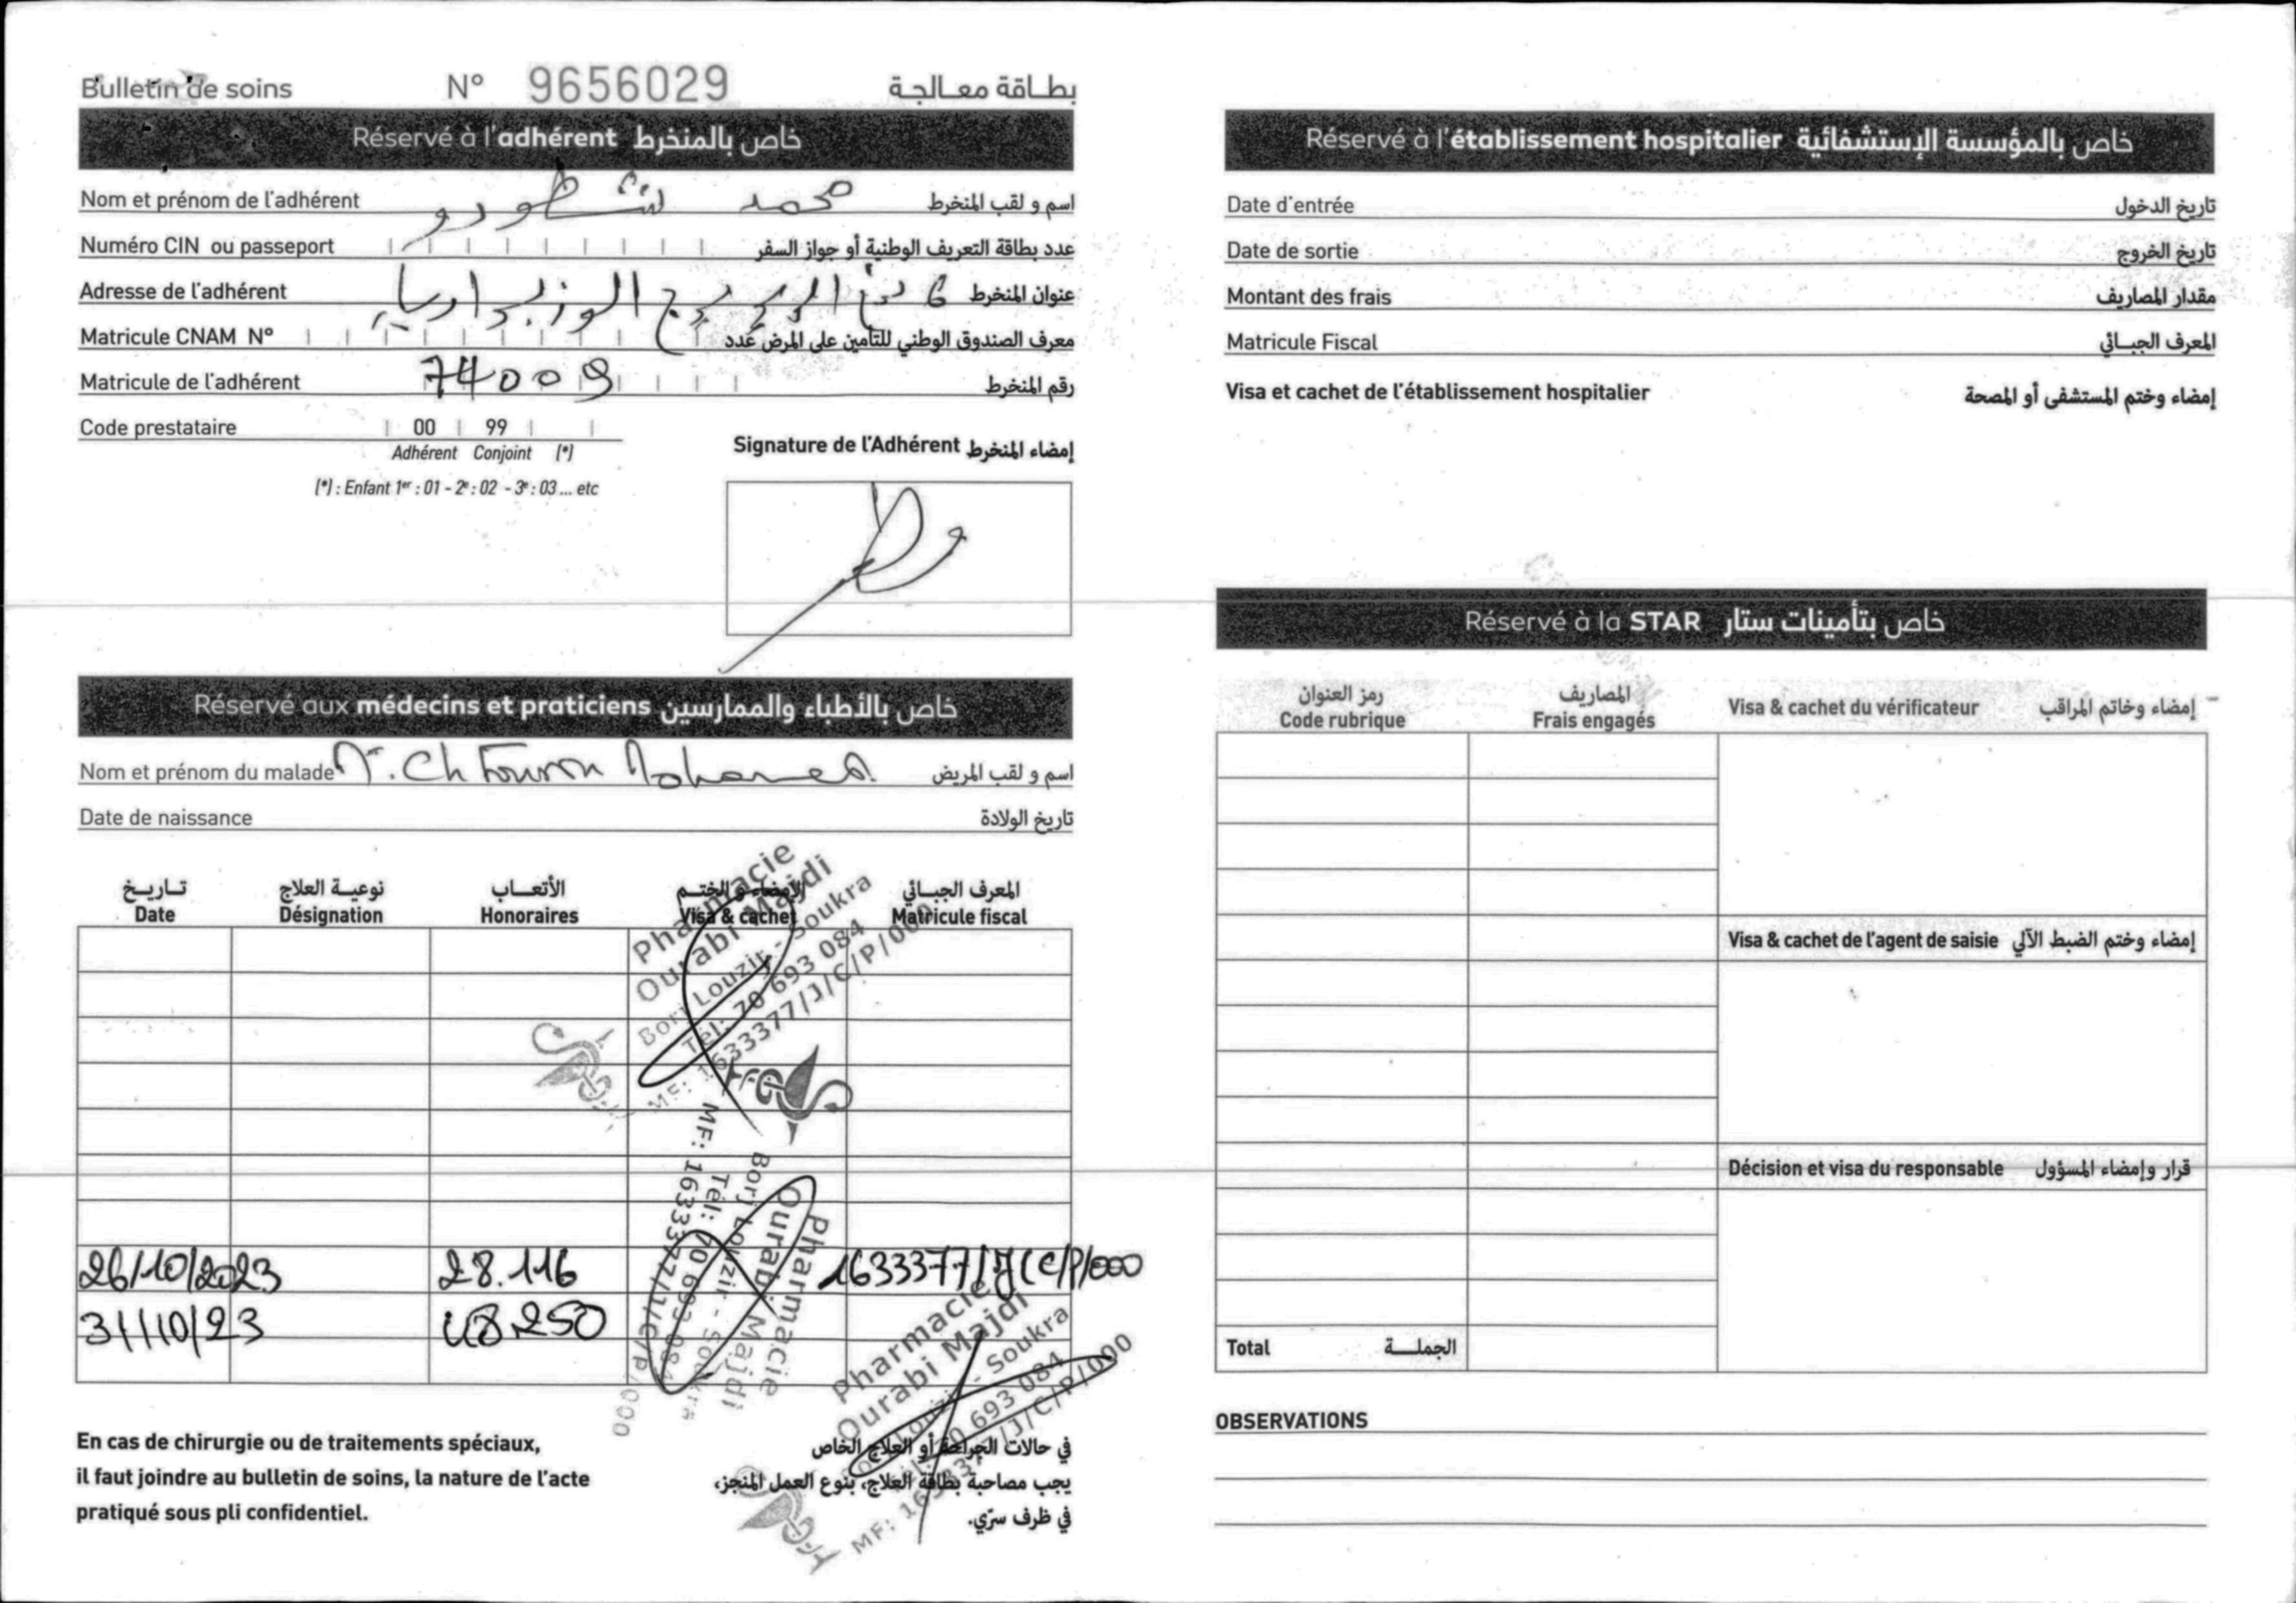 Bulletin de soins N° 9656029 بطاقة معالجة
Réservé à l'adhérent خاص بالمنخرط
Nom et prénom de l'adhérent محمد اسم و لقب المنخرط
Numéro CIN ou passeport عدد بطاقة التعريف الوطنية أو جواز السفر
Adresse de l'adhérent 6 عنوان المنخرط
Matricule CNAM N° معرف الصندوق الوطني للتأمين على المرض عدد
Matricule de l'adhérent 74009 رقم المنخرط
Code prestataire 00 99
Adhérent Conjoint (*)
(*) : Enfant 1er : 01 - 2e : 02 - 3e : 03 ... etc
Signature de l'Adhérent إمضاء المنخرط
Réservé aux médecins et praticiens خاص بالأطباء والممارسين
Nom et prénom du malade Mr. Chtourou Mohamed اسم و لقب المريض
Date de naissance تاريخ الولادة
تاريخ نوعية العلاج الأتعاب الإمضاء و الختم المعرف الجبائي
Date Désignation Honoraires Visa & cachet Matricule fiscal
Pharmacie
Ourabi Majdi
Borj Louzir - Soukra
Tél: 70 693 084
MF: 1633377/J/C/P/000
Pharmacie
Ourabi Majdi
Borj Louzir - Soukra
Tél: 70 693 084
MF: 1633377/J/C/P/000
26/10/2023 28.116 1633377/J/C/P/000
31/10/23 48.250
Pharmacie
Ourabi Majdi
Borj Louzir - Soukra
Tél: 70 693 084
MF: 1633377/J/C/P/000
En cas de chirurgie ou de traitements spéciaux,
il faut joindre au bulletin de soins, la nature de l'acte
pratiqué sous pli confidentiel.
في حالات الجراحة أو العلاج الخاص
يجب مصاحبة بطاقة العلاج، بنوع العمل المنجز،
في ظرف سرّي.
Réservé à l'établissement hospitalier خاص بالمؤسسة الإستشفائية
Date d'entrée تاريخ الدخول
Date de sortie تاريخ الخروج
Montant des frais مقدار المصاريف
Matricule Fiscal المعرف الجبائي
Visa et cachet de l'établissement hospitalier إمضاء وختم المستشفى أو المصحة
Réservé à la STAR خاص بتأمينات ستار
رمز العنوان المصاريف
Code rubrique Frais engagés Visa & cachet du vérificateur إمضاء وخاتم المراقب
Visa & cachet de l'agent de saisie إمضاء وختم الضبط الآلي
Décision et visa du responsable قرار وإمضاء المسؤول
Total الجملة
OBSERVATIONS